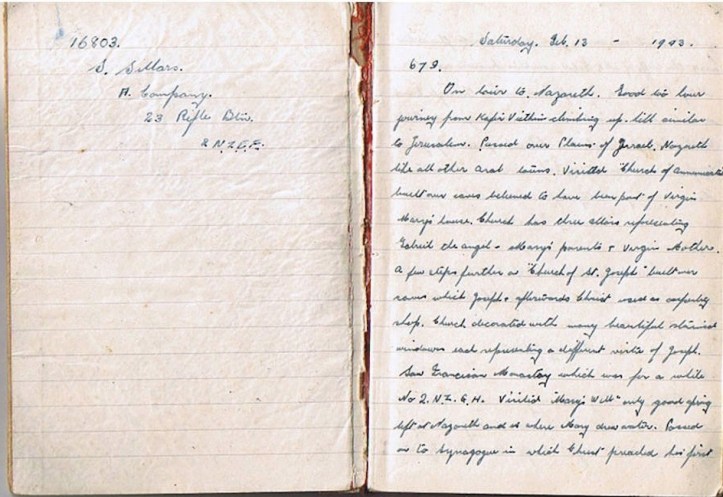 16803.
S. Sellars.
A. Company.
23 Rifles Btn.
2 N.Z.E.F.
Saturday. Feb. 13 - 1943.
678.
On tour to Nazareth. Good two hour
journey from Kafr Vitkin climbing up hill similar
to Jerusalem. Passed over Plains of Jezreel. Nazareth
like all other Arab towns. Visited "Church of Annunciation
built over caves believed to have been part of Virgin
Mary's house. Church has three alters representing
Gabriel the angel - Mary's parents & Virgin Mother.
A few steps further on "Church of St. Joseph" built over
caves which Joseph & afterwards Christ used as carpentry
shop. Church decorated with many beautiful stained
windows each representing a different virtue of Joseph.
Saw Franciscan Monastery which was for a while
No 2. N.Z.G.H. Visited "Mary's Well" only good spring
left at Nazareth and is where Mary drew water. Passed
on to Synagogue in which Christ preached his first